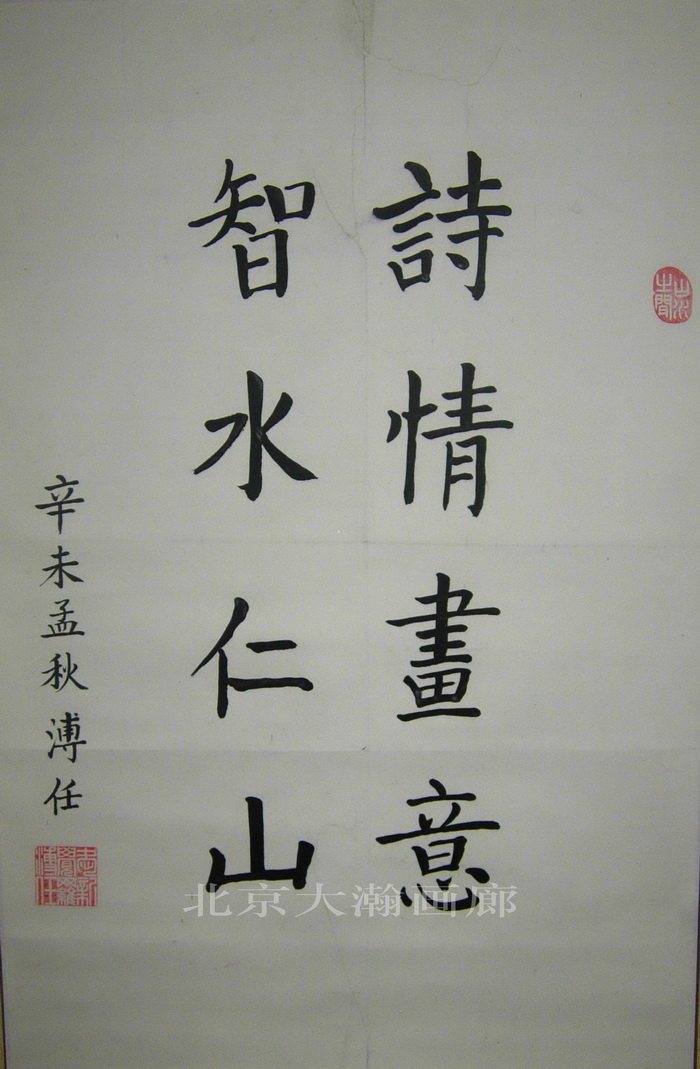 詩情畫意
智水仁山
辛未孟秋 溥任
北京大瀚画廊